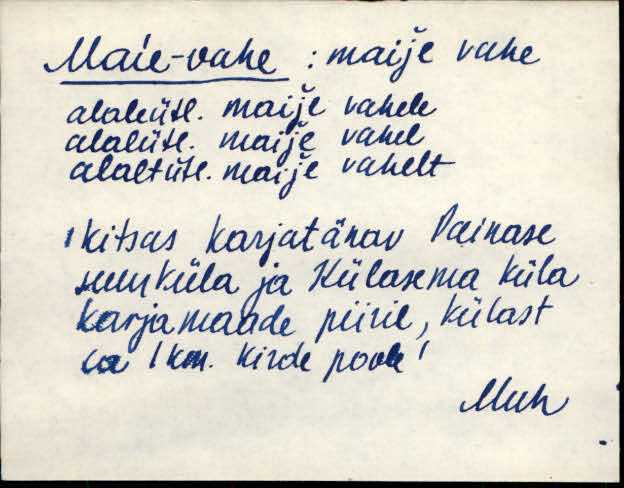 Maie-vahe : maije vahe
alaleütl. maije vahele
alalütl. maije vahel
alaltütl. maije vahelt
'kitsas karjatänav Painase
suurküla ja Külasema küla
karjamaade piiril, külast
ca 1 km. kirde poole'
Muh